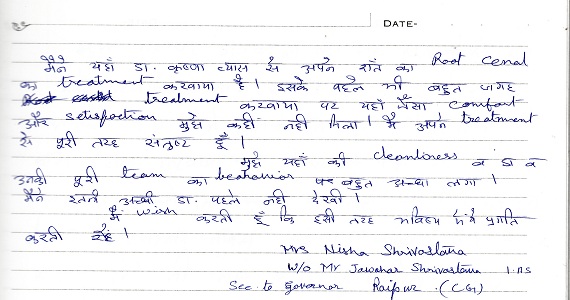 DATE-
मैने यहाँ डा. कृष्णा व्यास से अपने दाँत का Root Cenal
का treatment करवाया है। इसके पहले भी बहुत जगह
treatment करवाया पर यहाँ जैसा comfort
और satisfaction मुझे कहीं नही मिला। मै अपने treatment
से पूरी तरह संतुष्ट हूँ।
मुझे यहाँ की cleanliness व डा व
उनकी पूरी team का behaviour बहुत अच्छा लगा।
मैने इतनी अच्छी डा. पहले नही देखी।
मै wish करती हूँ कि इसी तरह भविष्य में प्रगति
करती रहें।
Mrs Nisha Shrivastava
W/o Mr Jawahar Shrivastava I.AS
Sec. to Governor Raipur. (CG)